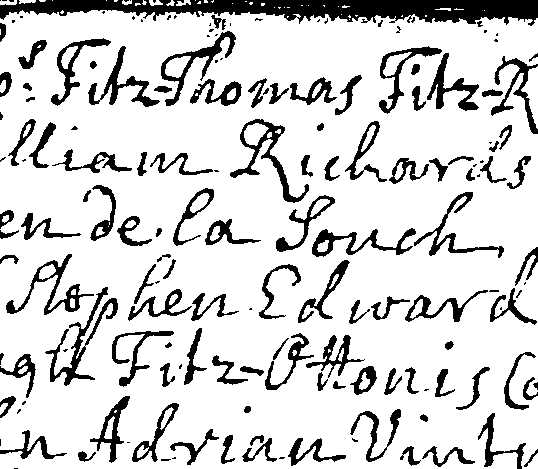 os: Fitz-Thomas Fitz-R
illiam Richards
en de la Souch
Stephen Edward
ugh Fitz-Ottonis Co
hn Adrian Vint